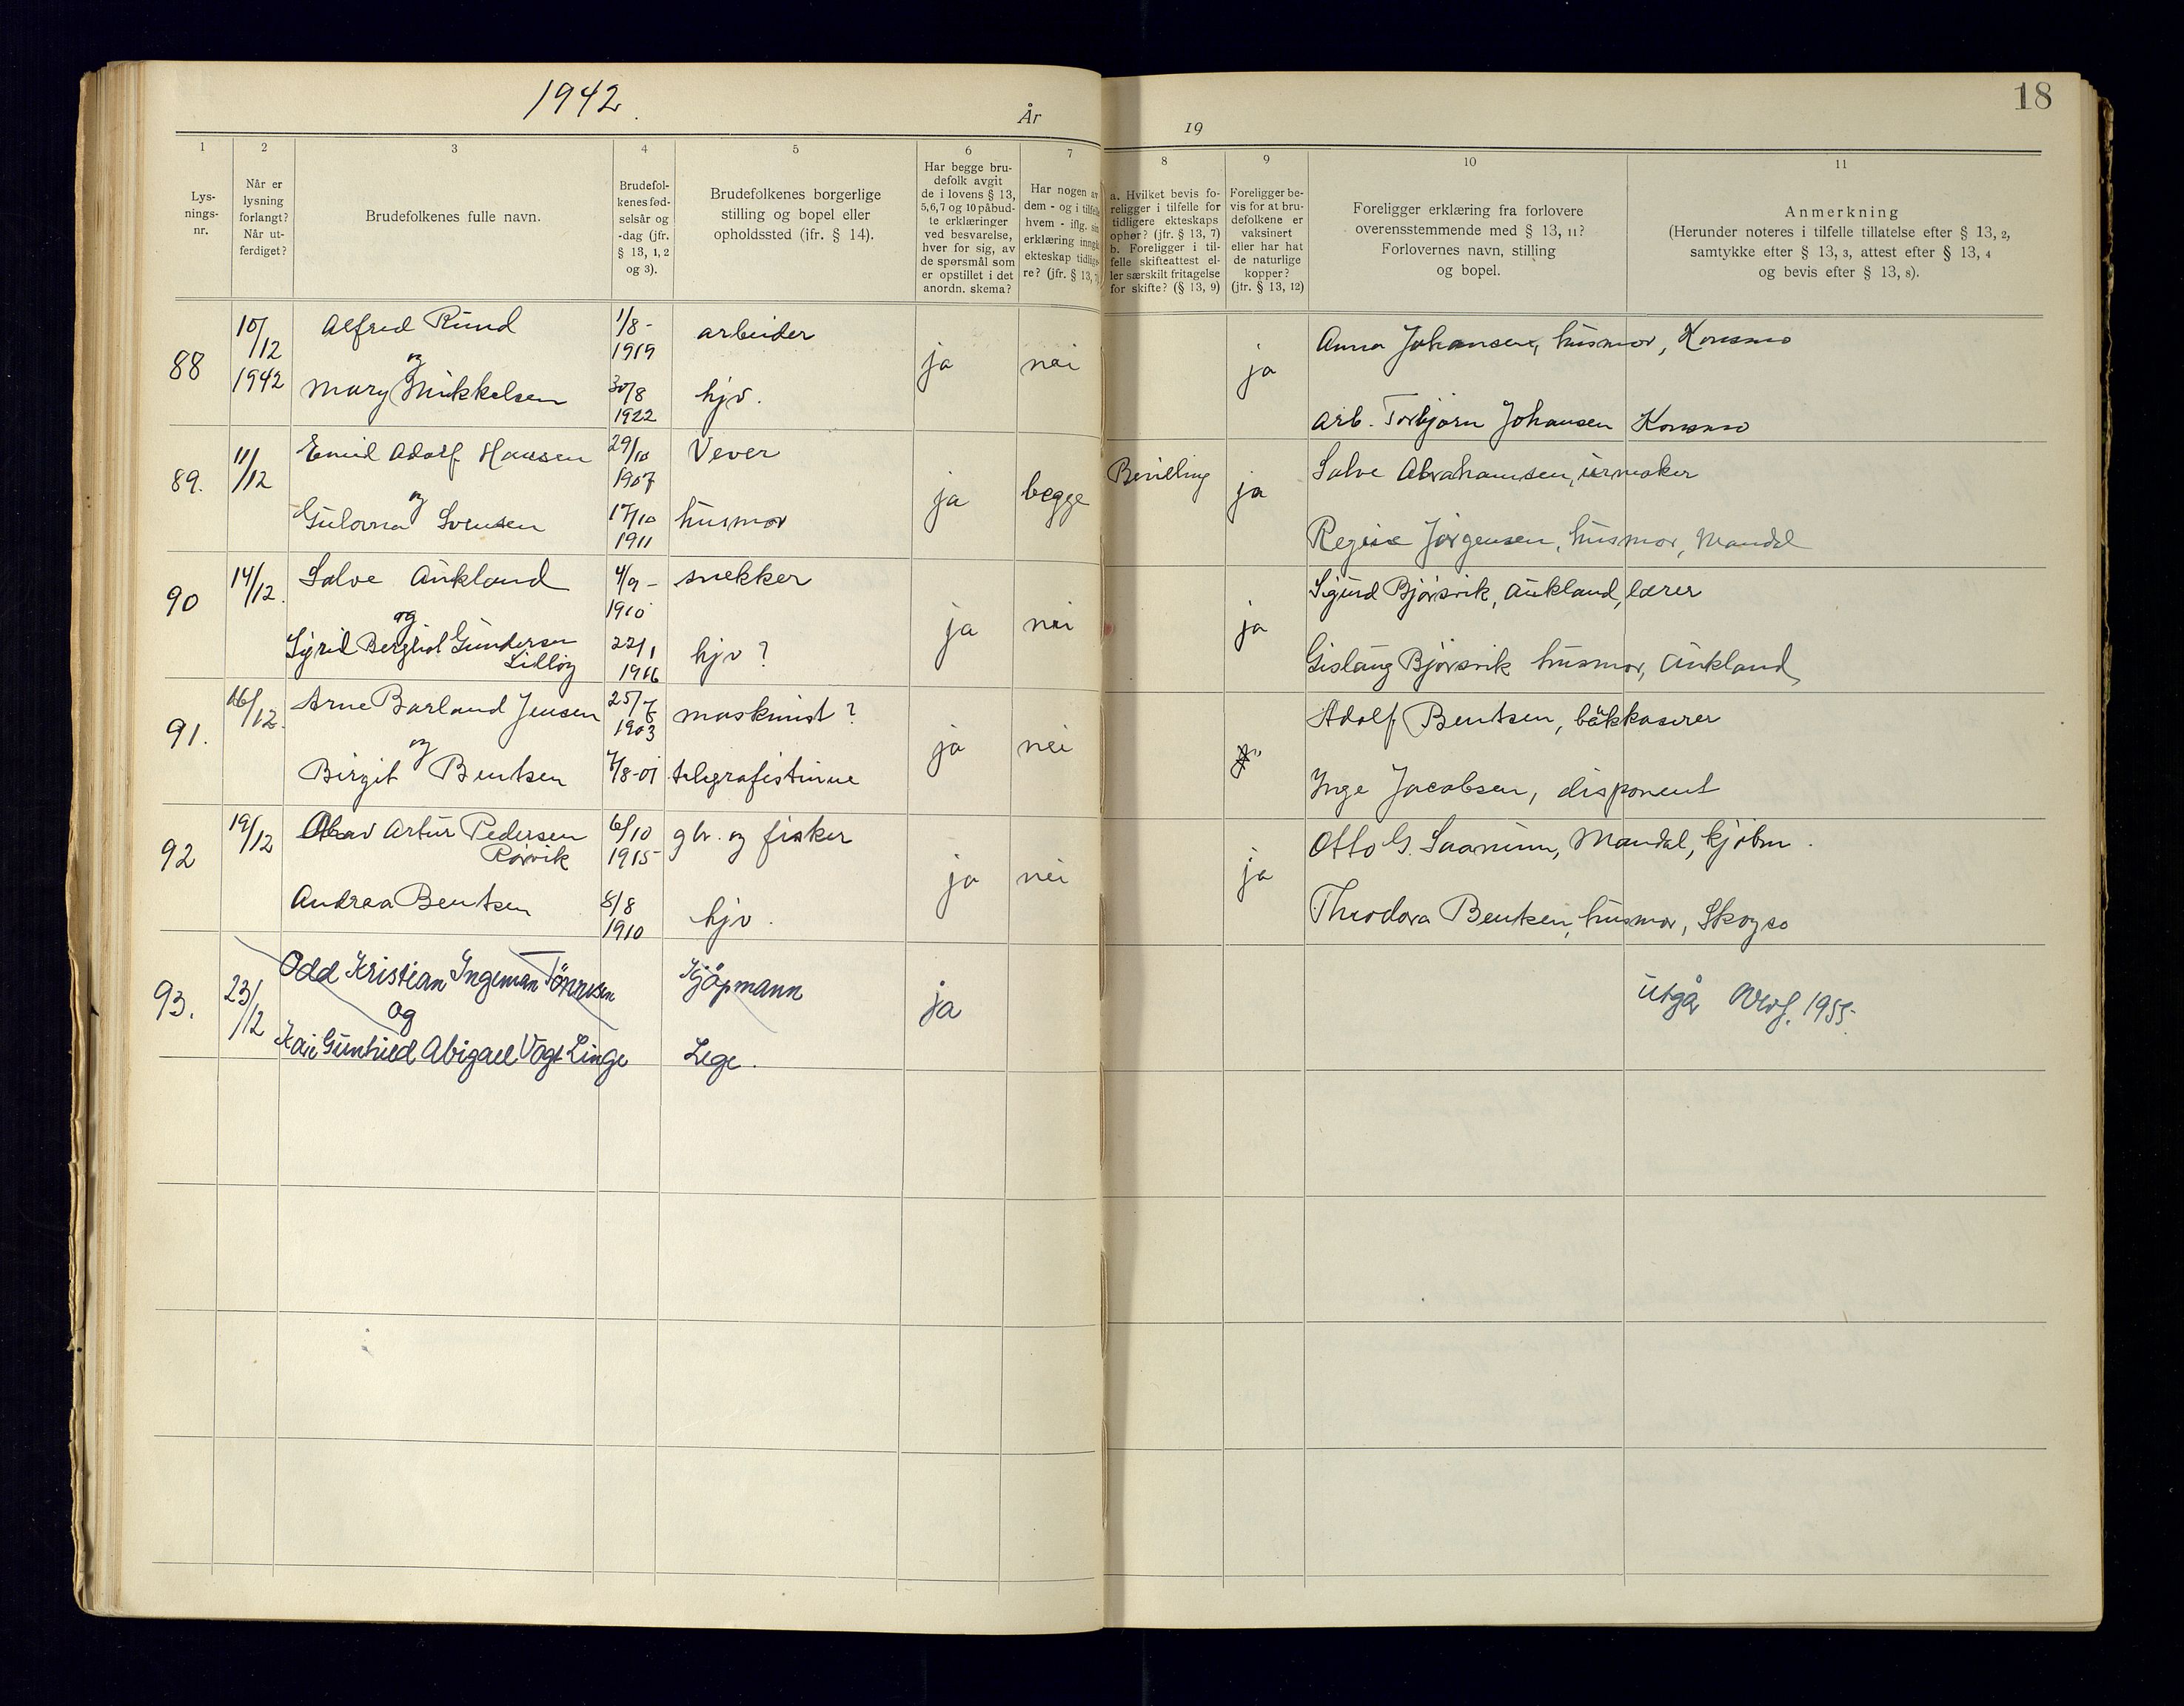 1942.
År
19
18
1 2 3 4 5 6 7 8 9 10 11
Lys-
nings-
nr.
Når er
lysning
forlangt?
Når ut-
ferdiget?
Brudefolkenes fulle navn.
Brudefol-
kenes fød-
selsår og
-dag (jfr.
§ 13, 1, 2
og 3).
Brudefolkenes borgerlige
stilling og bopel eller
opholdssted (jfr. § 14).
Har begge bru-
defolk avgit
de i lovens § 13,
5, 6, 7 og 10 påbud-
te erklæringer
ved besvarelse,
hver for sig, av
de spørsmål som
er opstillet i det
anordn. skema?
Har nogen av
dem - og i tilfelle
hvem - iflg. sin
erklæring inngåt
ekteskap tidlige-
re? (jfr. § 13, 7)
a. Hvilket bevis fo-
religger i tilfelle for
tidligere ekteskaps
ophør? (jfr. § 13, 7)
b. Foreligger i til-
felle skifteattest el-
ler særskilt fritagelse
for skifte? (§ 13, 9)
Foreligger be-
vis for at bru-
defolkene er
vaksinert
eller har hat
de naturlige
kopper?
(jfr. § 13, 12)
Foreligger erklæring fra forlovere
overensstemmende med § 13, 11?
Forlovernes navn, stilling
og bopel.
Anmerkning
(Herunder noteres i tilfelle tillatelse efter § 13, 2,
samtykke efter § 13, 3, attest efter § 13, 4
og bevis efter § 13, 8).
88
10/12
1942
Alfred Rund
og
Mary Mikkelsen
1/8-
1919
30/8
1922
arbeider
hjv.
ja
nei
ja
Anna Johansen, husmor, Konsmo
Arb. Torbjørn Johansen Konsmo
89.
11/12
Emil Adolf Hansen
og
Gulovna Svensen
29/10
1907
17/10
1911
Vever
husmor
ja
begge
Bevilling
ja
Salve Abrahamsen, urmaker
Regine Jørgensen, husmor, Mandal
90
14/12.
Salve Aukland
og
Sigrid Bergliot Gundersen
4/9-
1910
22/1
1916
snekker
hjv?
ja
nei
ja
Sigurd Bjørsvik, Aukland, lærer
Gislaug Bjørsvik husmor, Aukland
91.
16/12.
Arne Barland Jensen
og
Birgit Bentsen
25/7
1903
7/8-01
maskinist?
telegrafistinne
ja
nei
Adolf Bentsen, bykkaserer
Inge Jacobsen, disponent
92
19/12
Olav Artur Pedersen
Rørvik
Andrea Bentsen
6/10
1915
8/8
1910
gbr. og fisker
hjv.
ja
nei
ja
Otto G. Saanum, Mandal, kjøbm.
Theodora Bentsen, husmor, Skogsø
93.
23/12
Odd Kristian Ingeman Tönnesen
og
Kari Gunhild Abigael Vogt Linge
Kjöpmann
Lege.
ja
Utgår 1955.